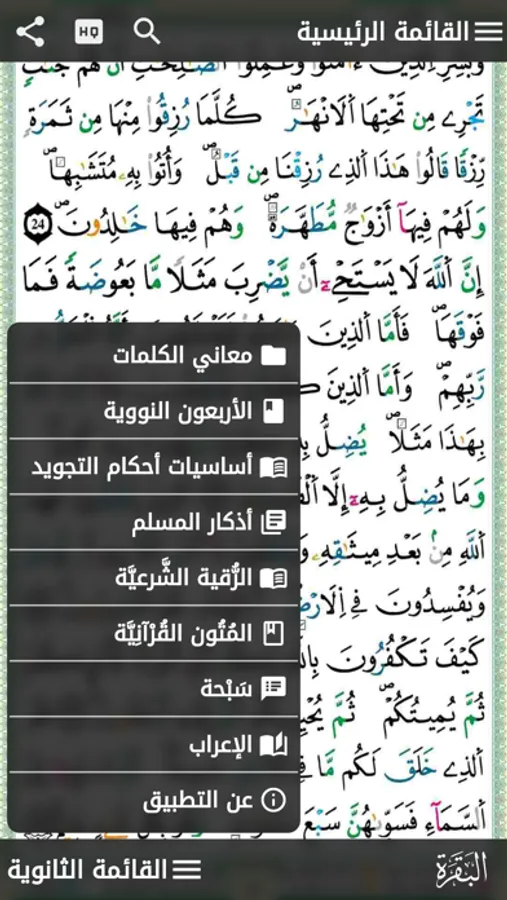 القائمة الرئيسية
HQ
تَجْرِے مِن تَحْتِهَا اَلَانْهَٰرُ كُلَّمَا رُزِقُواْ مِنْهَا مِن ثَمَرَةٖ
رِّزْقٗا قَالُواْ هَٰذَا اَلذِے رُزِقْنَا مِن قَبْلُ وَأُتُواْ بِهِۦ مُتَشَٰبِهٗا
وَلَهُمْ فِيهَآ أَزْوَٰجٞ مُّطَهَّرَةٞ وَهُمْ فِيهَا خَٰلِدُونَ 24
إِنَّ اَللَّهَ لَا يَسْتَحْےِۦٓ أَنْ يَّضْرِبَ مَثَلٗا مَّا بَعُوضَةٗ فَمَا
فَوْقَهَا فَأَمَّا اَلذِينَ
رَّبِّهِمْ وَأَمَّا اَلذِينَ
بِهَٰذَا مَثَلٗا يُضِلُّ
وَمَا يُضِلُّ بِهِۦٓ إِلَّا
اَللَّهِ مِنۢ بَعْدِ مِيثَٰقِهِۦ
وَيُفْسِدُونَ فِے اِلَارْضِ
كَيْفَ تَكْفُرُونَ
ثُمَّ يُمِيتُكُمْ ثُمَّ
اَلذِے خَلَقَ لَكُم مَّا
اَلسَّمَآءِ فَسَوَّىٰهُنَّ سَبْعَ
معاني الكلمات
الأربعون النووية
أساسيات أحكام التجويد
أذكار المسلم
الرُّقية الشَّرعيَّة
المُتُون القُرْآنِيَّة
سَبْحة
الإعراب
عن التطبيق
البَقَرَة
القائمة الثانوية